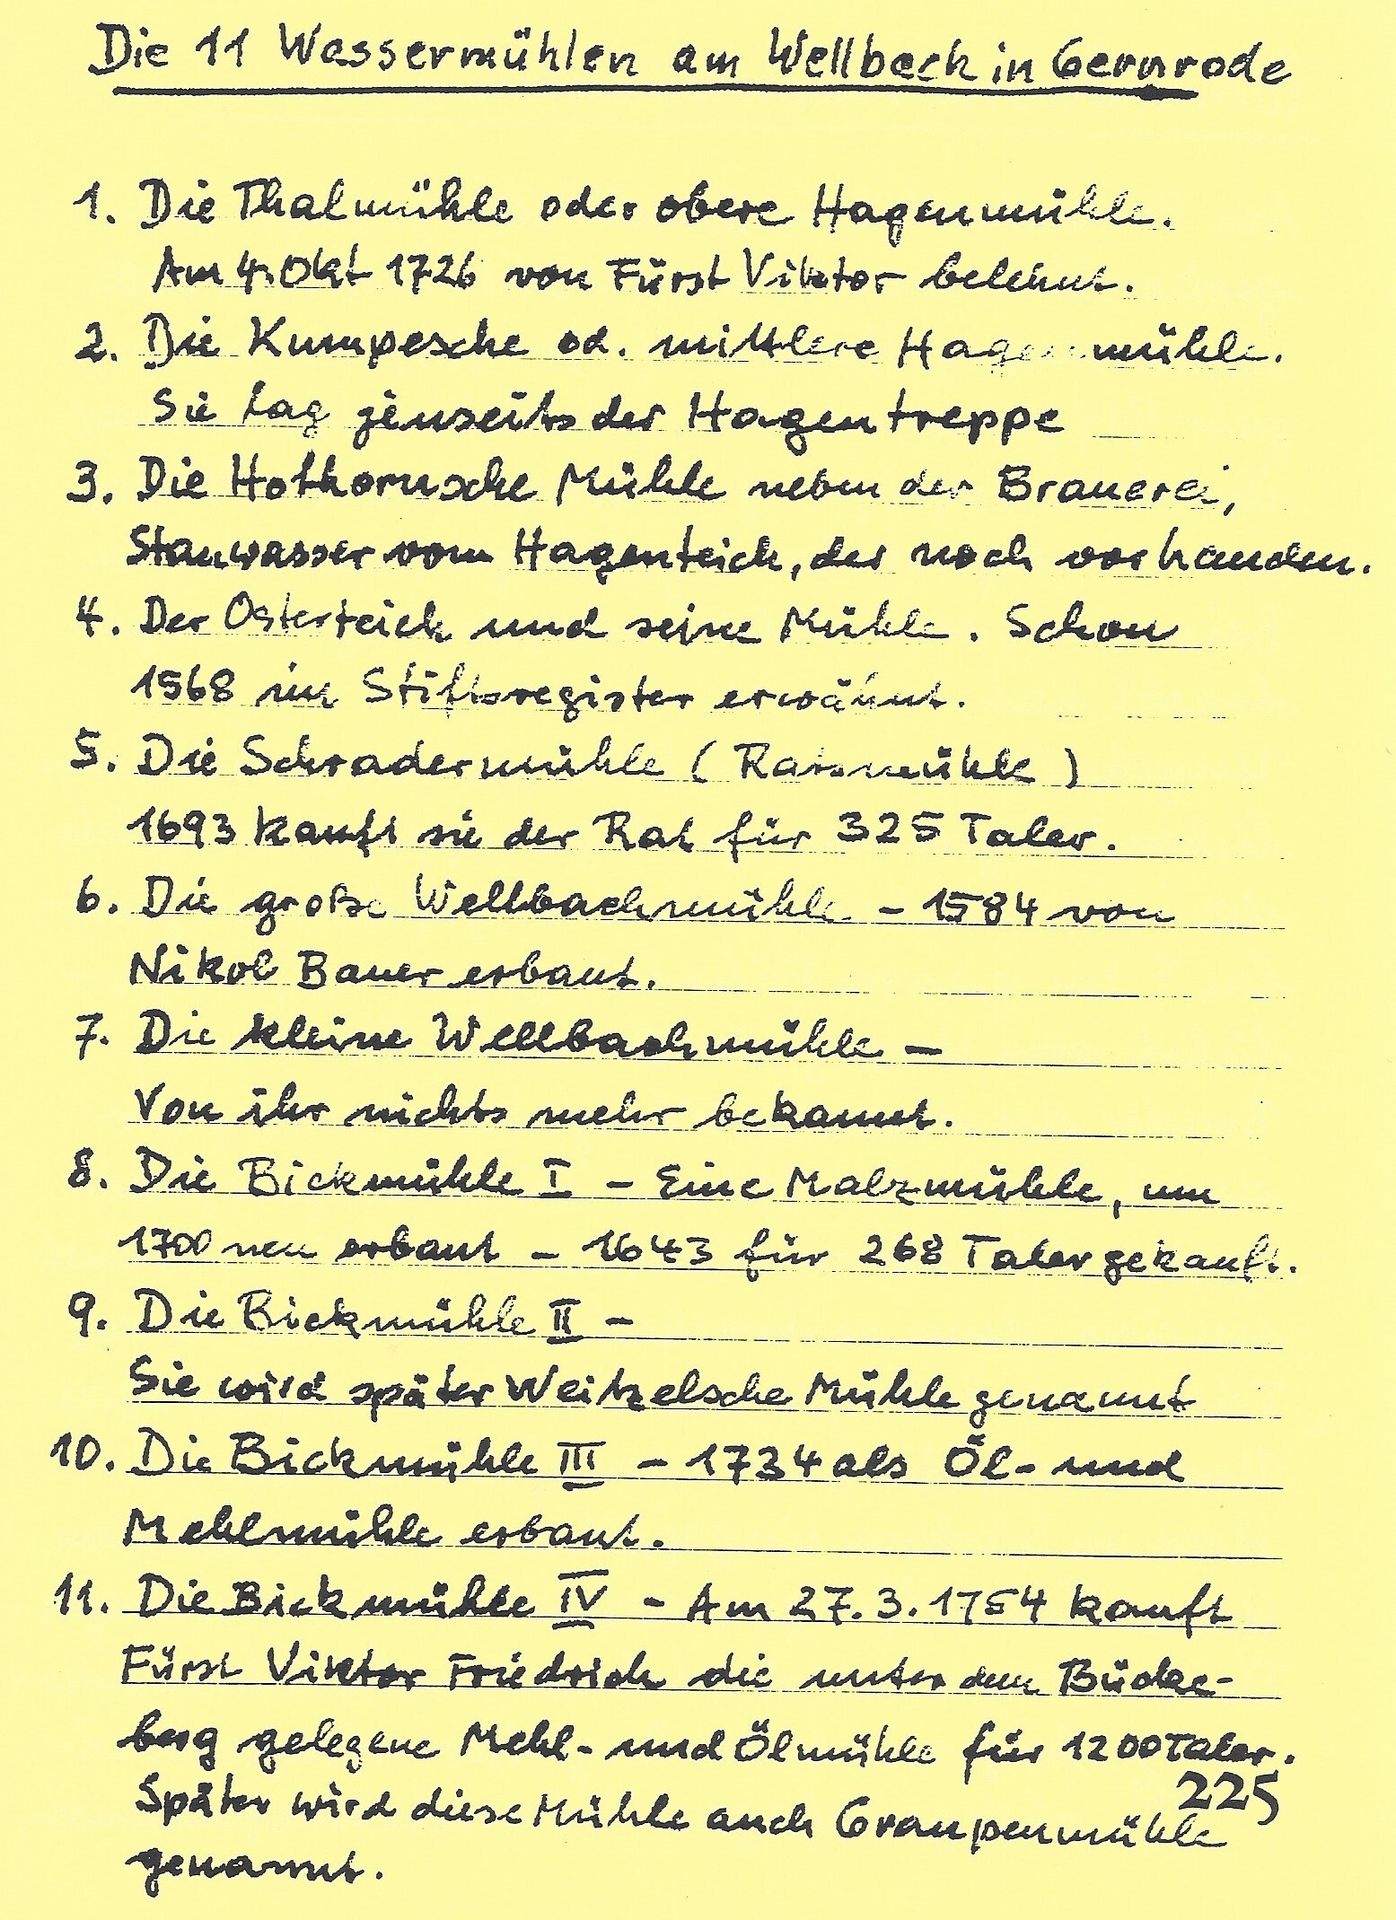 Die 11 Wassermühlen am Wellbeck in Gernrode
1. Die Thalmühle oder obere Hagenmühle.
Am 4. Okt 1726 von Fürst Viktor belehnt.
2. Die Kumpesche od. mittlere Hagenmühle.
Sie lag jenseits der Hagentreppe
3. Die Hothornsche Mühle neben der Brauerei,
Stauwasser vom Hagenteich, der noch vorhanden.
4. Der Osterteich und seine Mühle. Schon
1568 im Stiftsregister erwähnt.
5. Die Schradermühle (Ratsmühle)
1693 kauft sie der Rat für 325 Taler.
6. Die große Wellbachmühle - 1584 von
Nikol Bauer erbaut.
7. Die kleine Wellbachmühle -
Von ihr nichts mehr bekannt.
8. Die Bickmühle I - Eine Malzmühle, um
1700 neu erbaut - 1643 für 268 Taler gekauft.
9. Die Bickmühle II -
Sie wird später Weitzelsche Mühle genannt
10. Die Bickmühle III - 1734 als Öl- und
Mehlmühle erbaut.
11. Die Bickmühle IV - Am 27.3.1754 kauft
Fürst Viktor Friedrich die unter dem Bücke-
berg gelegene Mehl- und Ölmühle für 1200 Taler.
225
Später wird diese Mühle auch Graupenmühle
genannt.